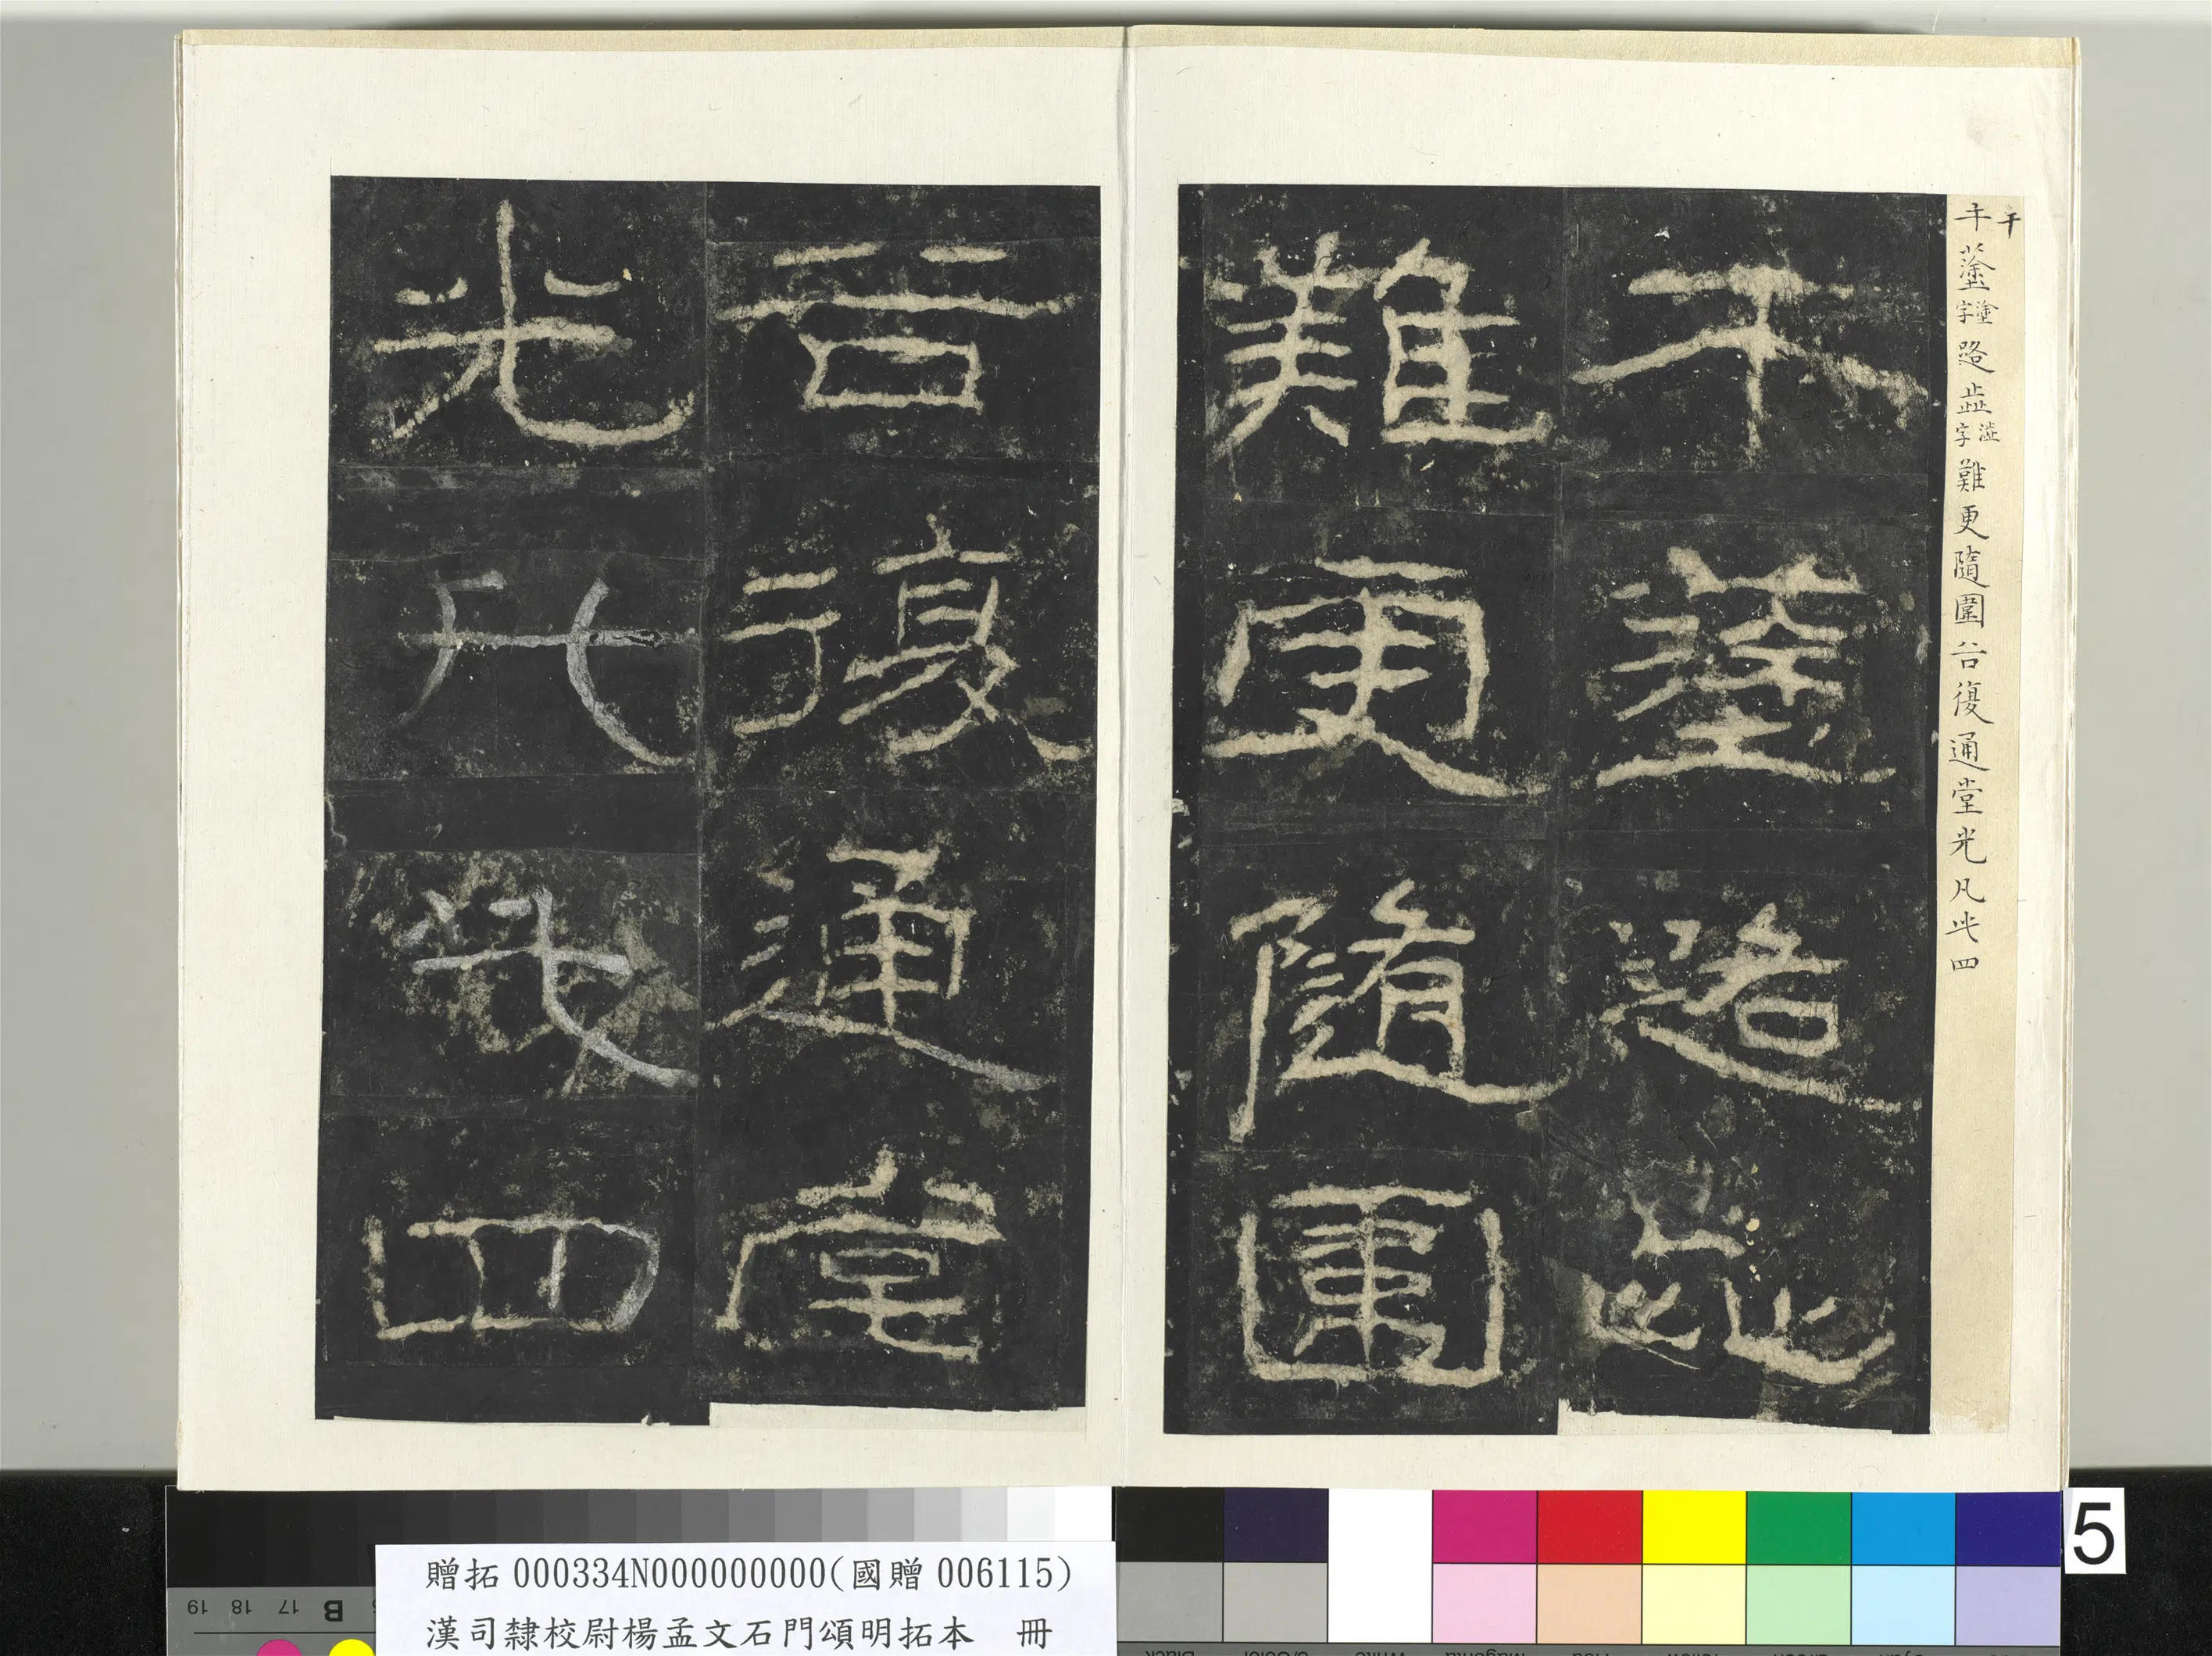 午塗塗字路歰澁字難更隨圍谷復通堂光凡此四
午塗路歰
難更隨圍
谷復通堂
光凡此四
贈拓 000334N000000000(國贈 006115)
漢司隸校尉楊孟文石門頌明拓本 冊
5
19 18 17 B